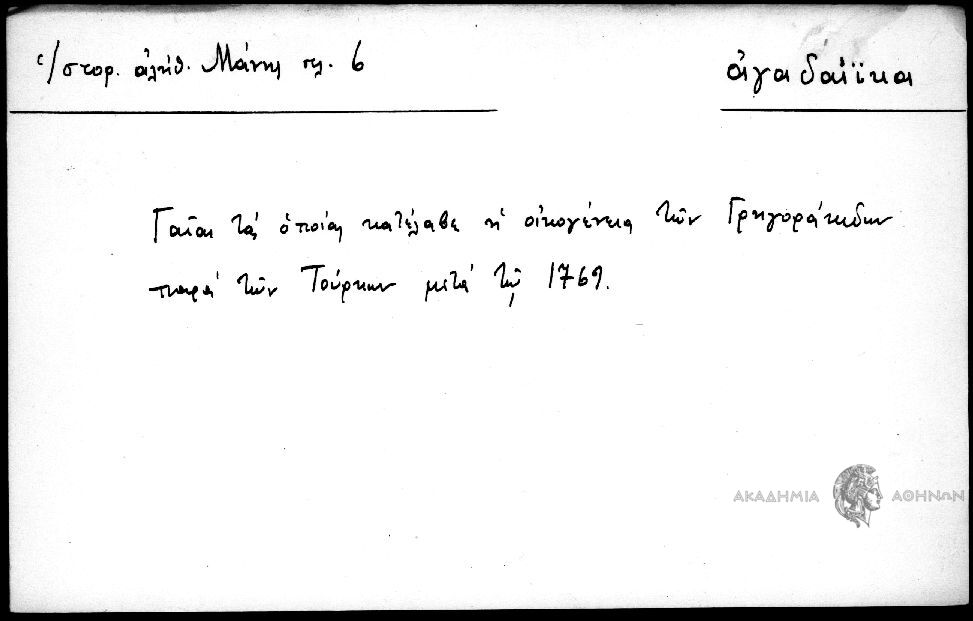 Ἱστορ. ἀλήθ. Μάνης σελ. 6
ἀγαδαΐϊκα
Γαῖαι τὰς ὁποίας κατέλαβε ἡ οἰκογένεια τῶν Γρηγοράκιδων
παρὰ τῶν Τούρκων μετὰ τῷ 1769.
ΑΚΑΔΗΜΙΑ ΑΘΗΝΩΝ